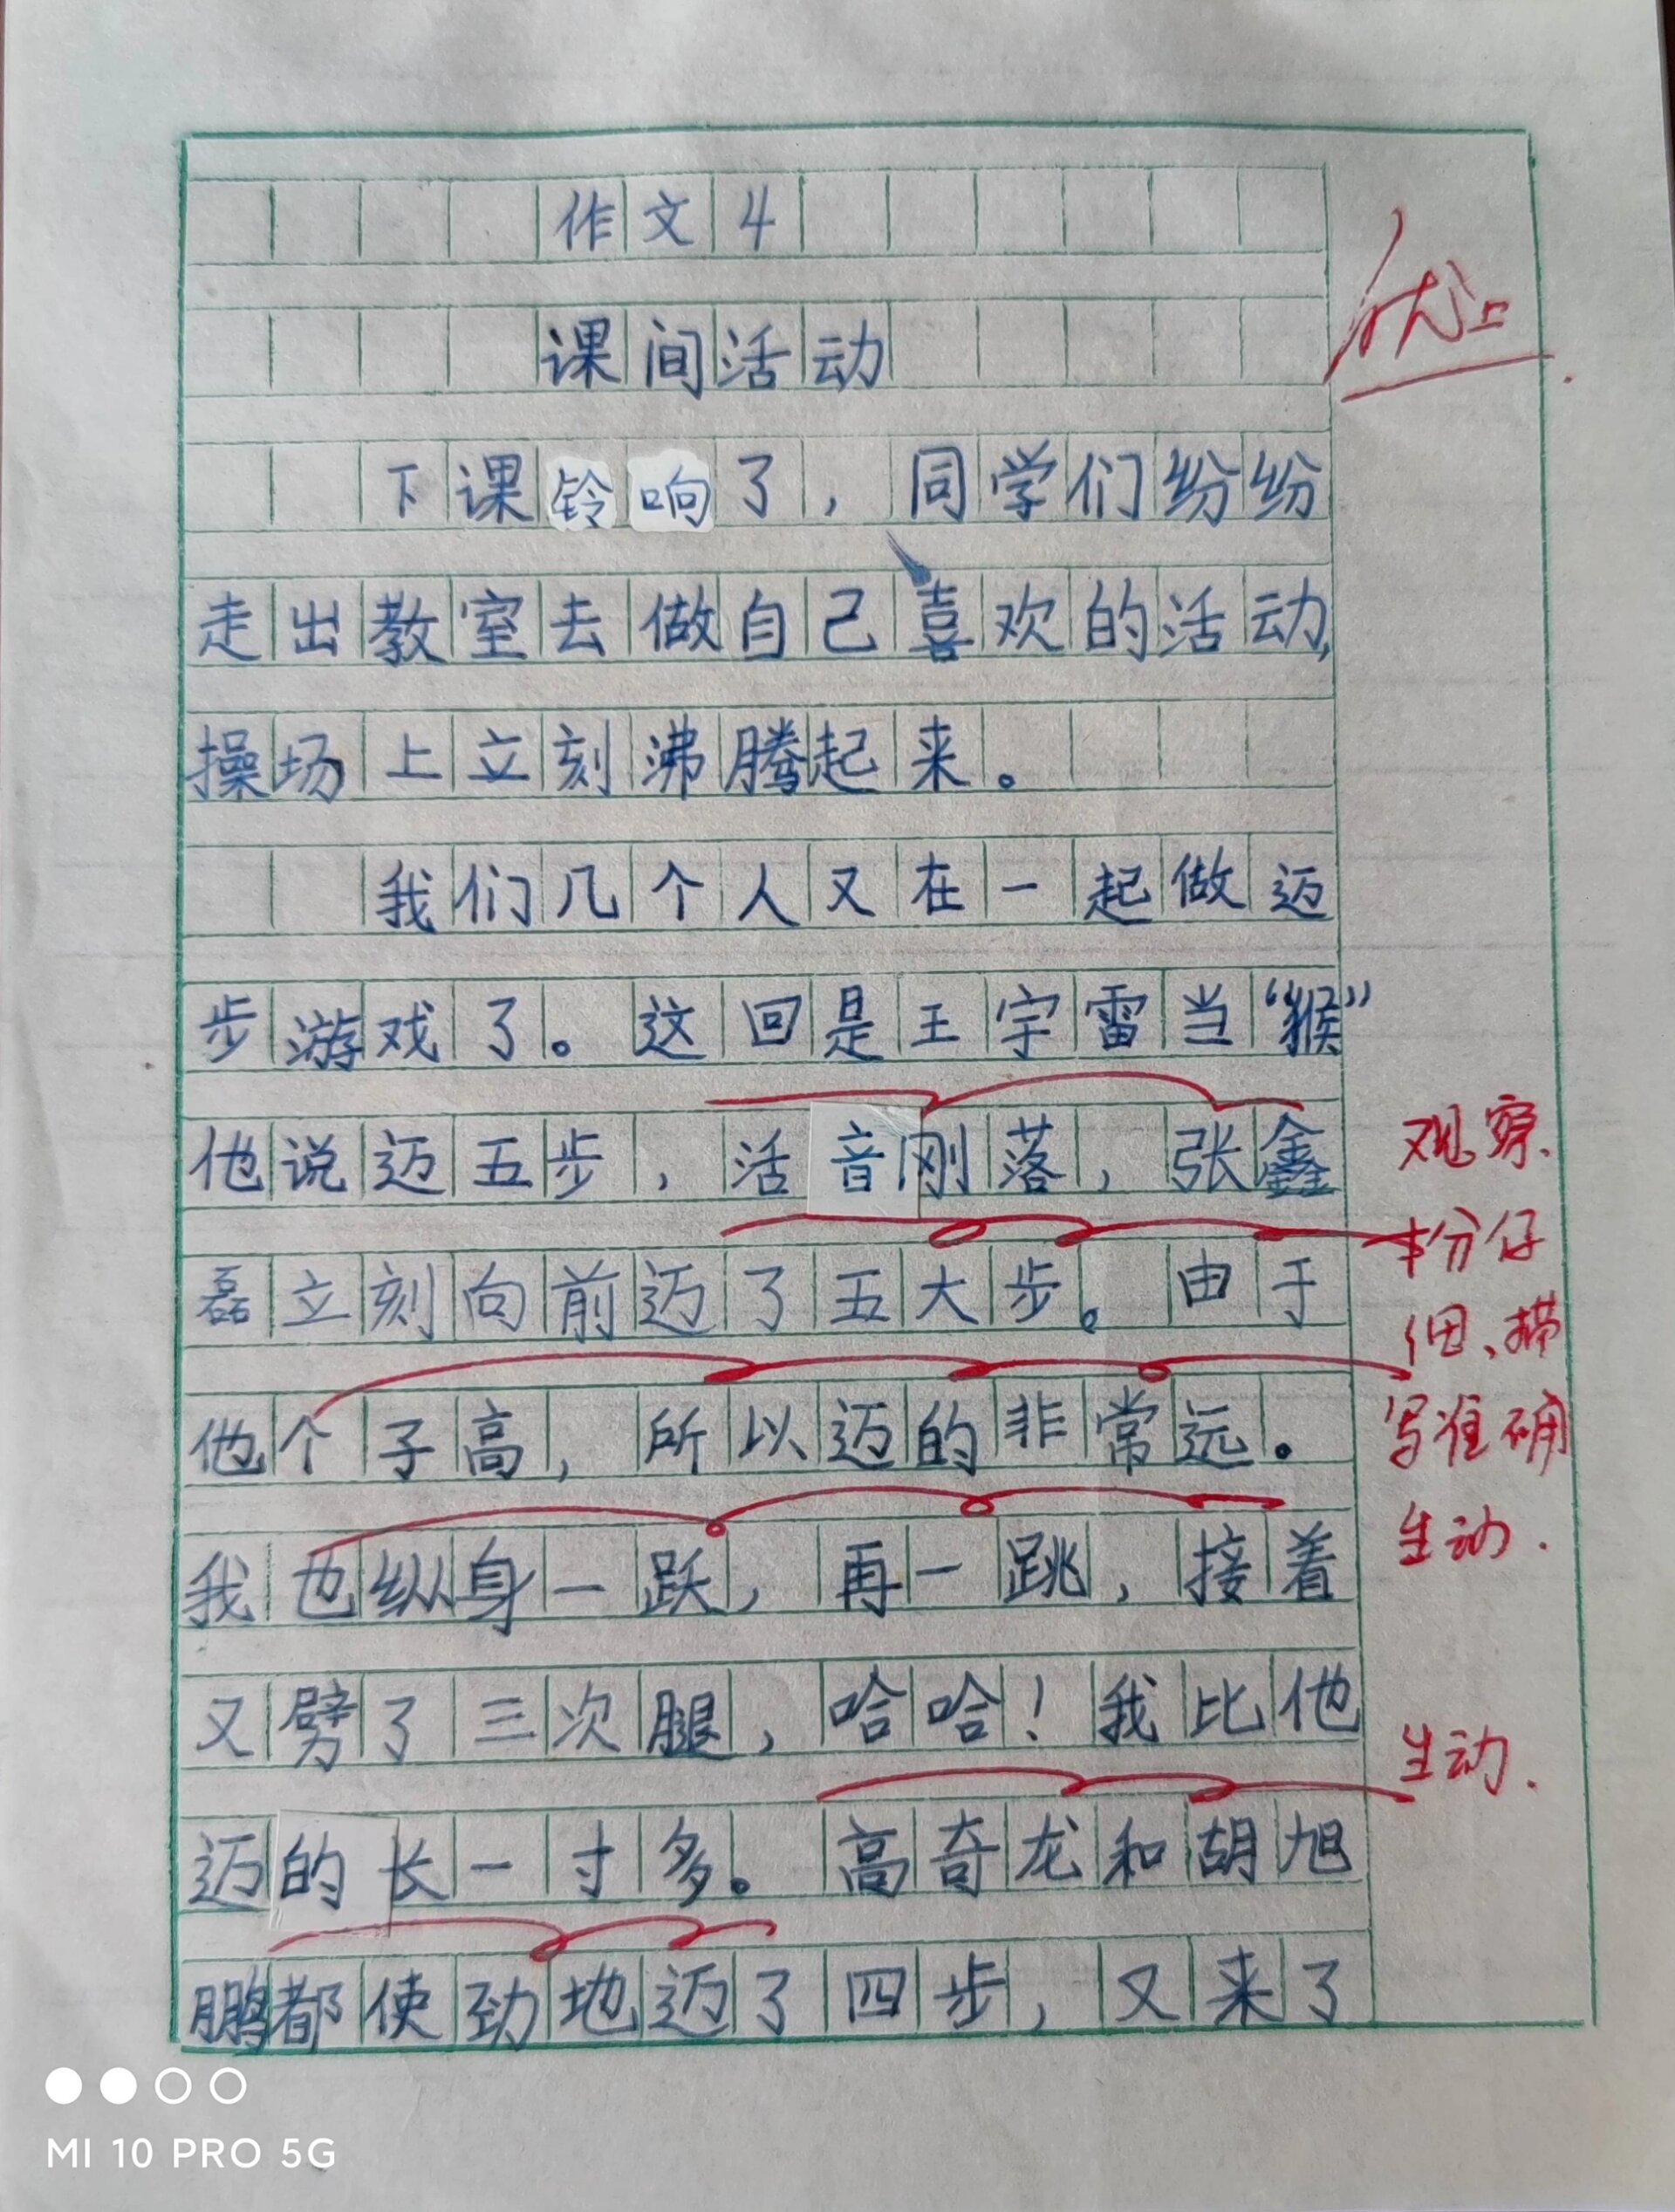 作文4
优上
课间活动
下课铃响了，同学们纷纷
走出教室去做自己喜欢的活动，
操场上立刻沸腾起来。
我们几个人又在一起做迈
步游戏了。这回是王宇雷当“猴”
他说迈五步，活音刚落，张鑫
磊立刻向前迈了五大步。由于
他个子高，所以迈的非常远。
我也纵身一跃，再一跳，接着
又劈了三次腿，哈哈！我比他
迈的长一寸多。高奇龙和胡旭
鹏都使劲地迈了四步，又来了
观察
十分仔
细、描
写准确
生动.
生动.
MI 10 PRO 5G